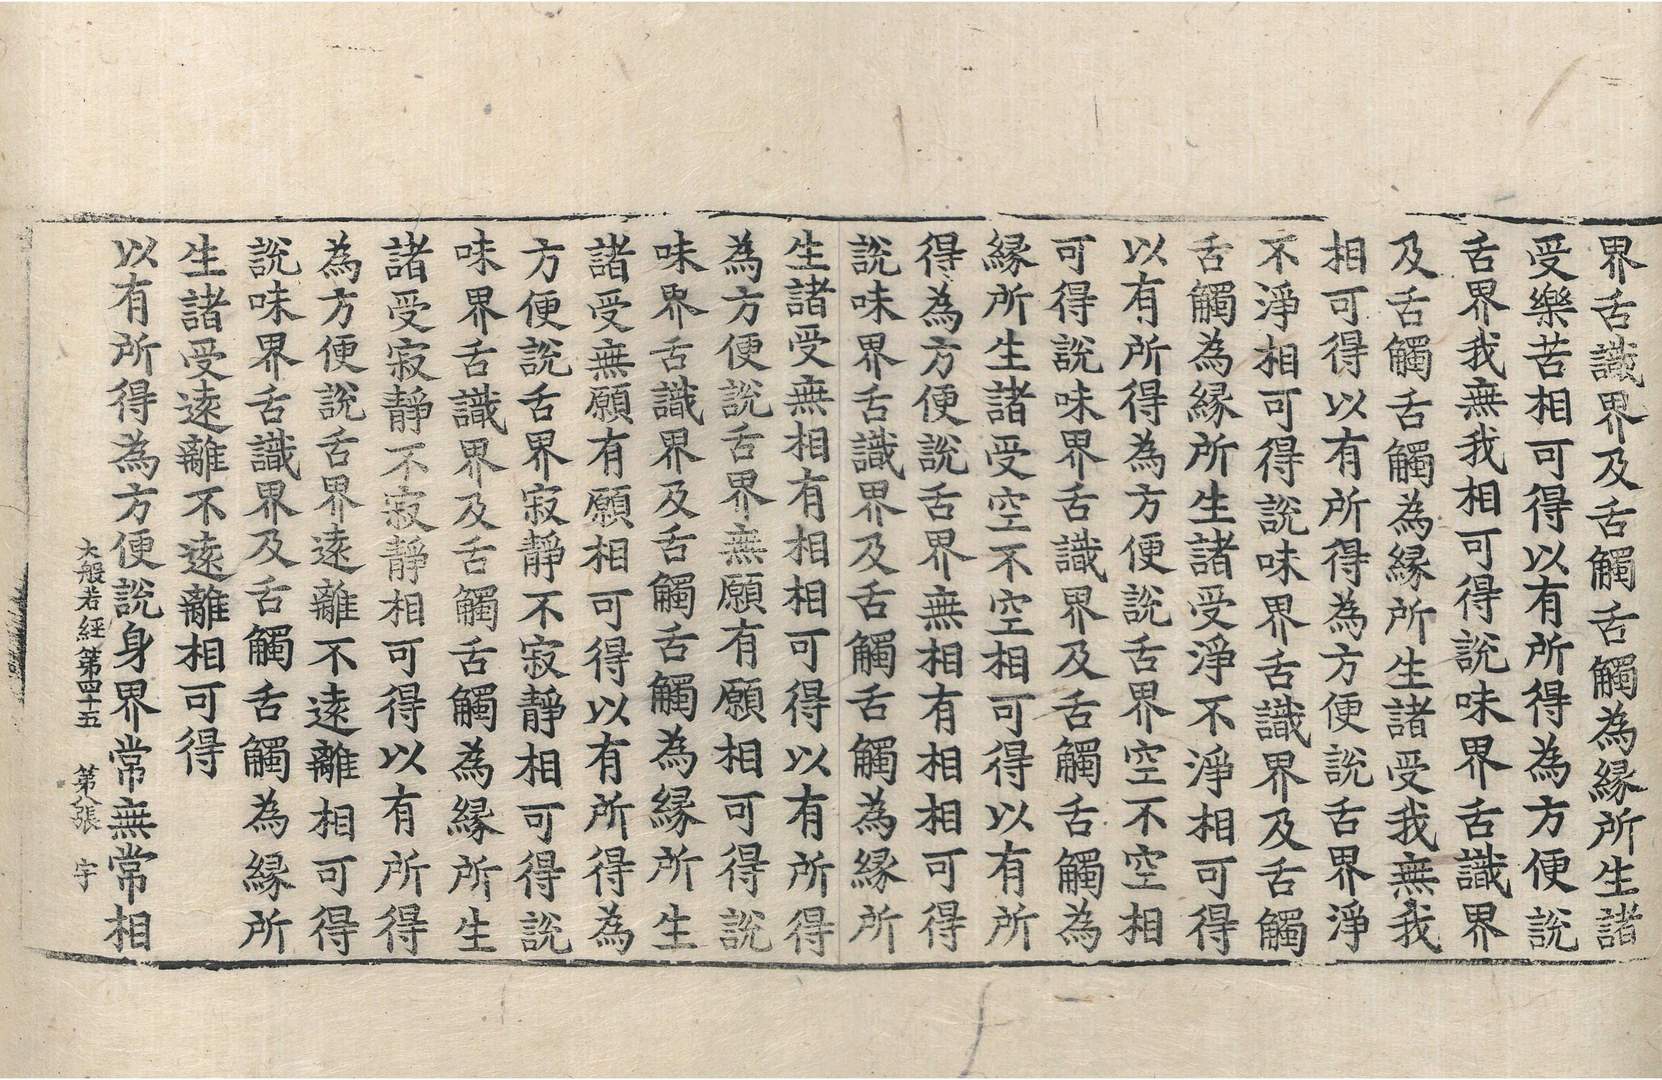 界舌識界及舌觸舌觸為縁所生諸
受樂苦相可得以有所得為方便說
舌界我無我相可得說味界舌識界
及舌觸舌觸為縁所生諸受我無我
相可得以有所得為方便說舌界淨
不淨相可得說味界舌識界及舌觸
舌觸為縁所生諸受淨不淨相可得
以有所得為方便說舌界空不空相
可得說味界舌識界及舌觸舌觸為
縁所生諸受空不空相可得以有所
得為方便說舌界無相有相相可得
說味界舌識界及舌觸舌觸為縁所
生諸受無相有相相可得以有所得
為方便說舌界無願有願相可得說
味界舌識界及舌觸舌觸為縁所生
諸受無願有願相可得以有所得為
方便說舌界寂靜不寂靜相可得說
味界舌識界及舌觸舌觸為縁所生
諸受寂靜不寂靜相可得以有所得
為方便說舌界遠離不遠離相可得
說味界舌識界及舌觸舌觸為縁所
生諸受遠離不遠離相可得
以有所得為方便說身界常無常相
大般若經第四十五 第八張 宇